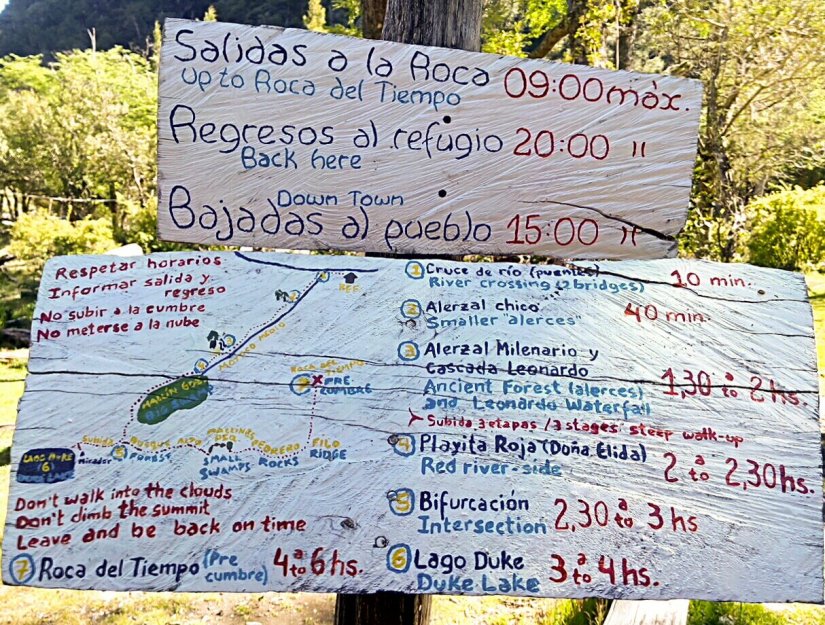 Salidas a la Roca 09:00 máx.
Up to Roca del Tiempo
Regresos al refugio 20:00 "
Back here
Down Town
Bajadas al pueblo 15:00 "
Respetar horarios
Informar salida y
regreso
No subir a la cumbre
No meterse a la nube
REF
ROCA DEL TIEMPO
7 X PRE CUMBRE
LAGO DUKE
(6)
Mirador
SUBIDA
BOSQUE ALTO
5 FOREST
SMALL SWAMPS
ROCKS
FILO
RIDGE
Don't walk into the clouds
Don't climb the summit
Leave and be back on time
7 Roca del Tiempo (Pre cumbre) 4 a to 6 hs.
1 Cruce de río (puentes) 10 min.
River crossing (2 bridges)
2 Alerzal chico 40 min.
Smaller "alerces"
3 Alerzal Milenario y
Cascada Leonardo 1,30 a to 2 hs.
Ancient Forest (alerces)
and Leonardo Waterfall
Subida 3 etapas / 3 stages steep walk-up
4 Playita Roja (Doña Elida) 2 a to 2,30 hs.
Red river-side
5 Bifurcación 2,30 a to 3 hs
Intersection
6 Lago Duke 3 a to 4 hs.
Duke Lake